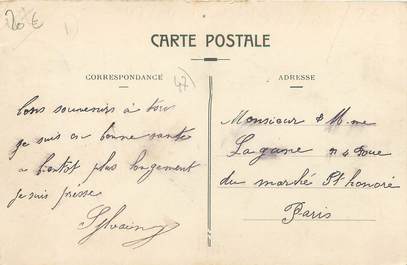 20 €
CARTE POSTALE
CORRESPONDANCE
47)
ADRESSE
bons souvenirs à tous
je suis en bonne santé
a bientôt plus longement
je suis pressé
Sylvain
Monsieur & Mme
Lagane n 4 Rue
du marché St honoré
Paris